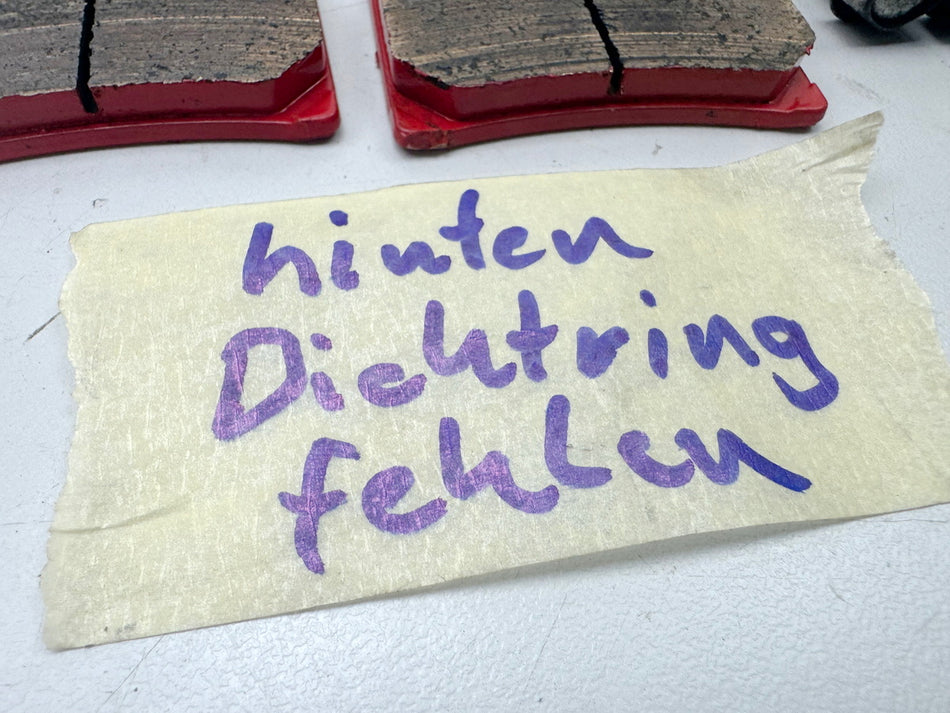 hinten
Dichtring
fehlen